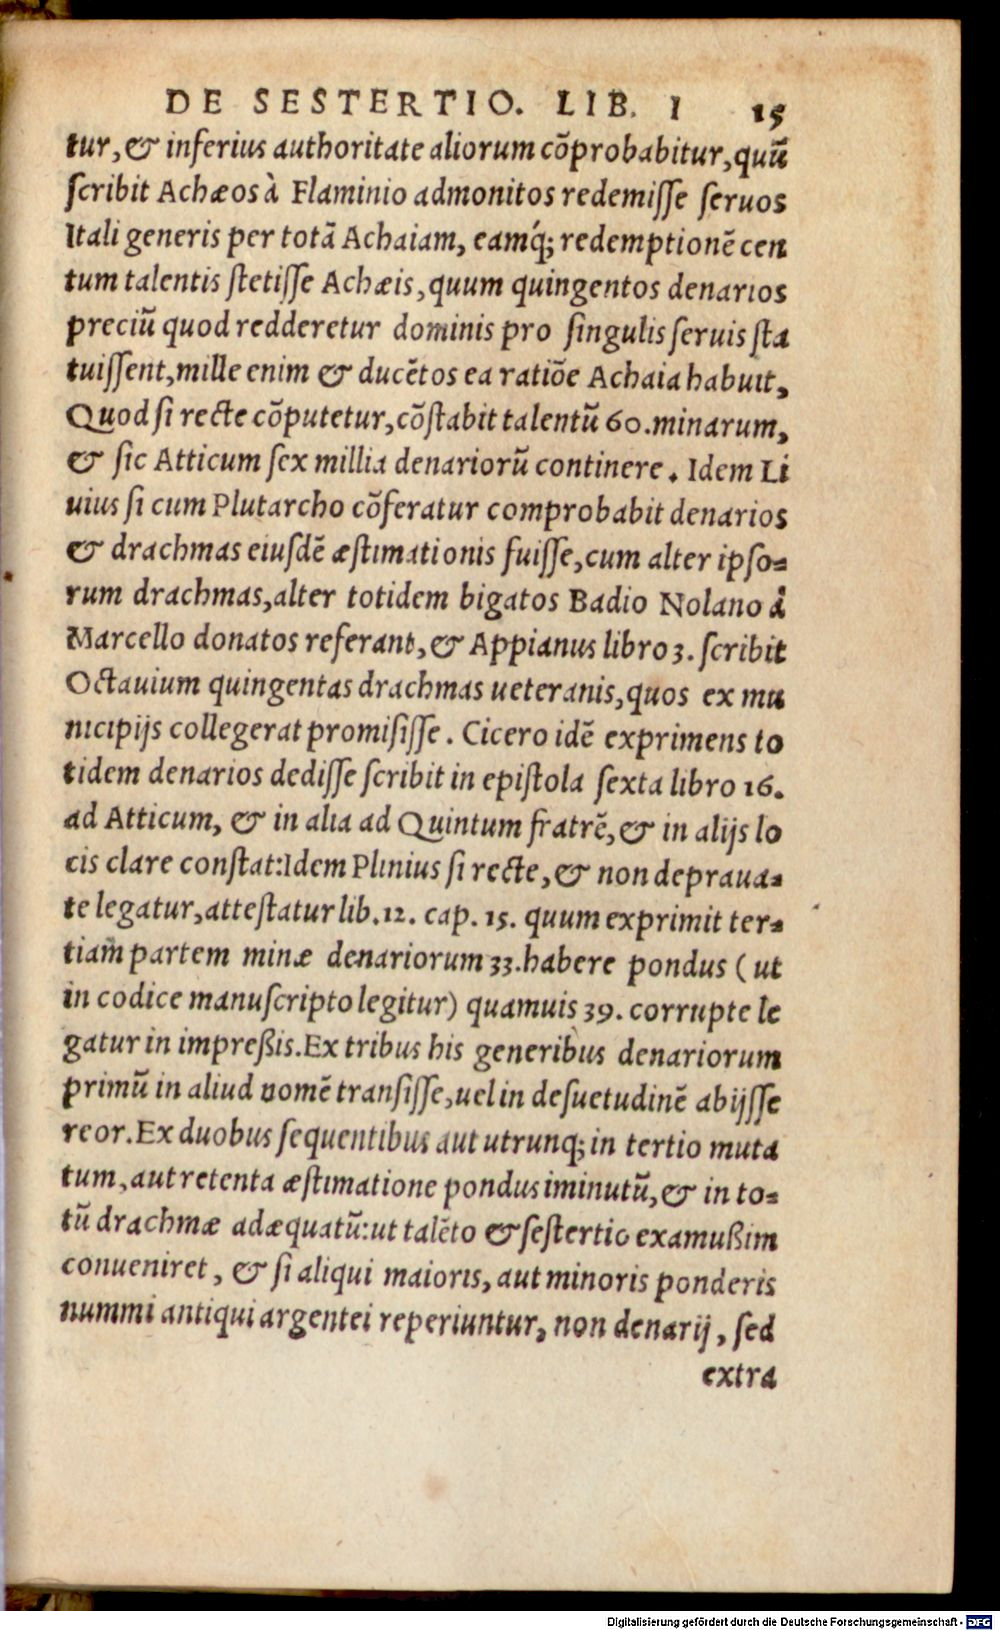 DE SESTERTIO. LIB. I 15
tur, & inferius authoritate aliorum cõprobabitur, quũ
ſcribit Achæos à Flaminio admonitos redemiſſe ſeruos
Itali generis per totã Achaiam, eamq́; redemptionẽ cen
tum talentis ſtetiſſe Achæis, quum quingentos denarios
preciũ quod redderetur dominis pro ſingulis ſeruis ſta
tuiſſent, mille enim & ducẽtos ea ratiõe Achaia habuit,
Quod ſi recte cõputetur, cõſtabit talentũ 60. minarum,
& ſic Atticum ſex millia denariorũ continere. Idem Li
uius ſi cum Plutarcho cõferatur comprobabit denarios
& drachmas eiuſdẽ æſtimationis fuiſſe, cum alter ipſo-
rum drachmas, alter totidem bigatos Badio Nolano à
Marcello donatos referant, & Appianus libro 3. ſcribit
Octauium quingentas drachmas ueteranis, quos ex mu
nicipijs collegerat promiſiſſe. Cicero idẽ exprimens to
tidem denarios dediſſe ſcribit in epiſtola ſexta libro 16.
ad Atticum, & in alia ad Quintum fratrẽ, & in alijs lo
cis clare conſtat: Idem Plinius ſi recte, & non depraua-
te legatur, atteſtatur lib. 12. cap. 15. quum exprimit ter-
tiam partem minæ denariorum 33. habere pondus (ut
in codice manuſcripto legitur) quamuis 39. corrupte le
gatur in impreßis. Ex tribus his generibus denariorum
primũ in aliud nomẽ tranſiſſe, uel in deſuetudinẽ abijſſe
reor. Ex duobus ſequentibus aut utrunq; in tertio muta
tum, aut retenta æſtimatione pondus iminutũ, & in to-
tũ drachmæ adæquatũ: ut talẽto & ſeſtertio examußim
conueniret, & ſi aliqui maioris, aut minoris ponderis
nummi antiqui argentei reperiuntur, non denarij, ſed
extra
Digitalisierung gefördert durch die Deutsche Forschungsgemeinschaft - DFG